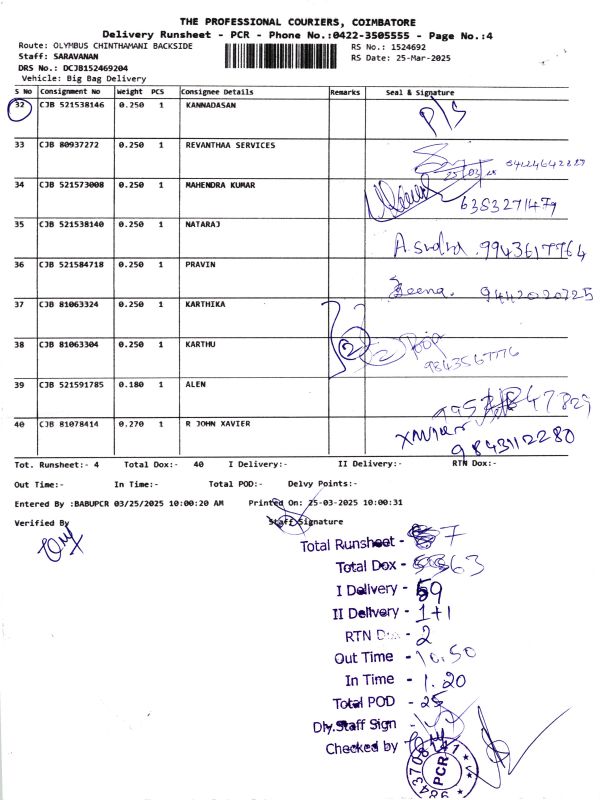 THE PROFESSIONAL COURIERS, COIMBATORE
Delivery Runsheet - PCR - Phone No.:0422-3505555 - Page No.:4
Route: OLYMBUS CHINTHAMANI BACKSIDE RS No.: 1524692
Staff: SARAVANAN RS Date: 25-Mar-2025
DRS No.: DCJB152469204
Vehicle: Big Bag Delivery
S No Consignment No Weight PCS Consignee Details Remarks Seal & Signature
32 CJB 521538146 0.250 1 KANNADASAN P/S
33 CJB 80937272 0.250 1 REVANTHAA SERVICES
34 CJB 521573008 0.250 1 MAHENDRA KUMAR 6383271479
35 CJB 521538140 0.250 1 NATARAJ 9943617764
36 CJB 521584718 0.250 1 PRAVIN 9442020725
37 CJB 81063324 0.250 1 KARTHIKA
38 CJB 81063304 0.250 1 KARTHU 2 9843567776
39 CJB 521591785 0.180 1 ALEN
40 CJB 81078414 0.270 1 R JOHN XAVIER XAVIER 9843112280
Tot. Runsheet:- 4 Total Dox:- 40 I Delivery:- II Delivery:- RTN Dox:-
Out Time:- In Time:- Total POD:- Delvy Points:-
Entered By :BABUPCR 03/25/2025 10:00:20 AM Printed On: 25-03-2025 10:00:31
Verified By Staff Signature
Total Runsheet - 7
Total Dox - 63
I Delivery - 59
II Delivery - 1+1
RTN Dox - 2
Out Time - 10.50
In Time - 1.20
Total POD - 25
Dly.Staff Sign -
Checked by
PCR